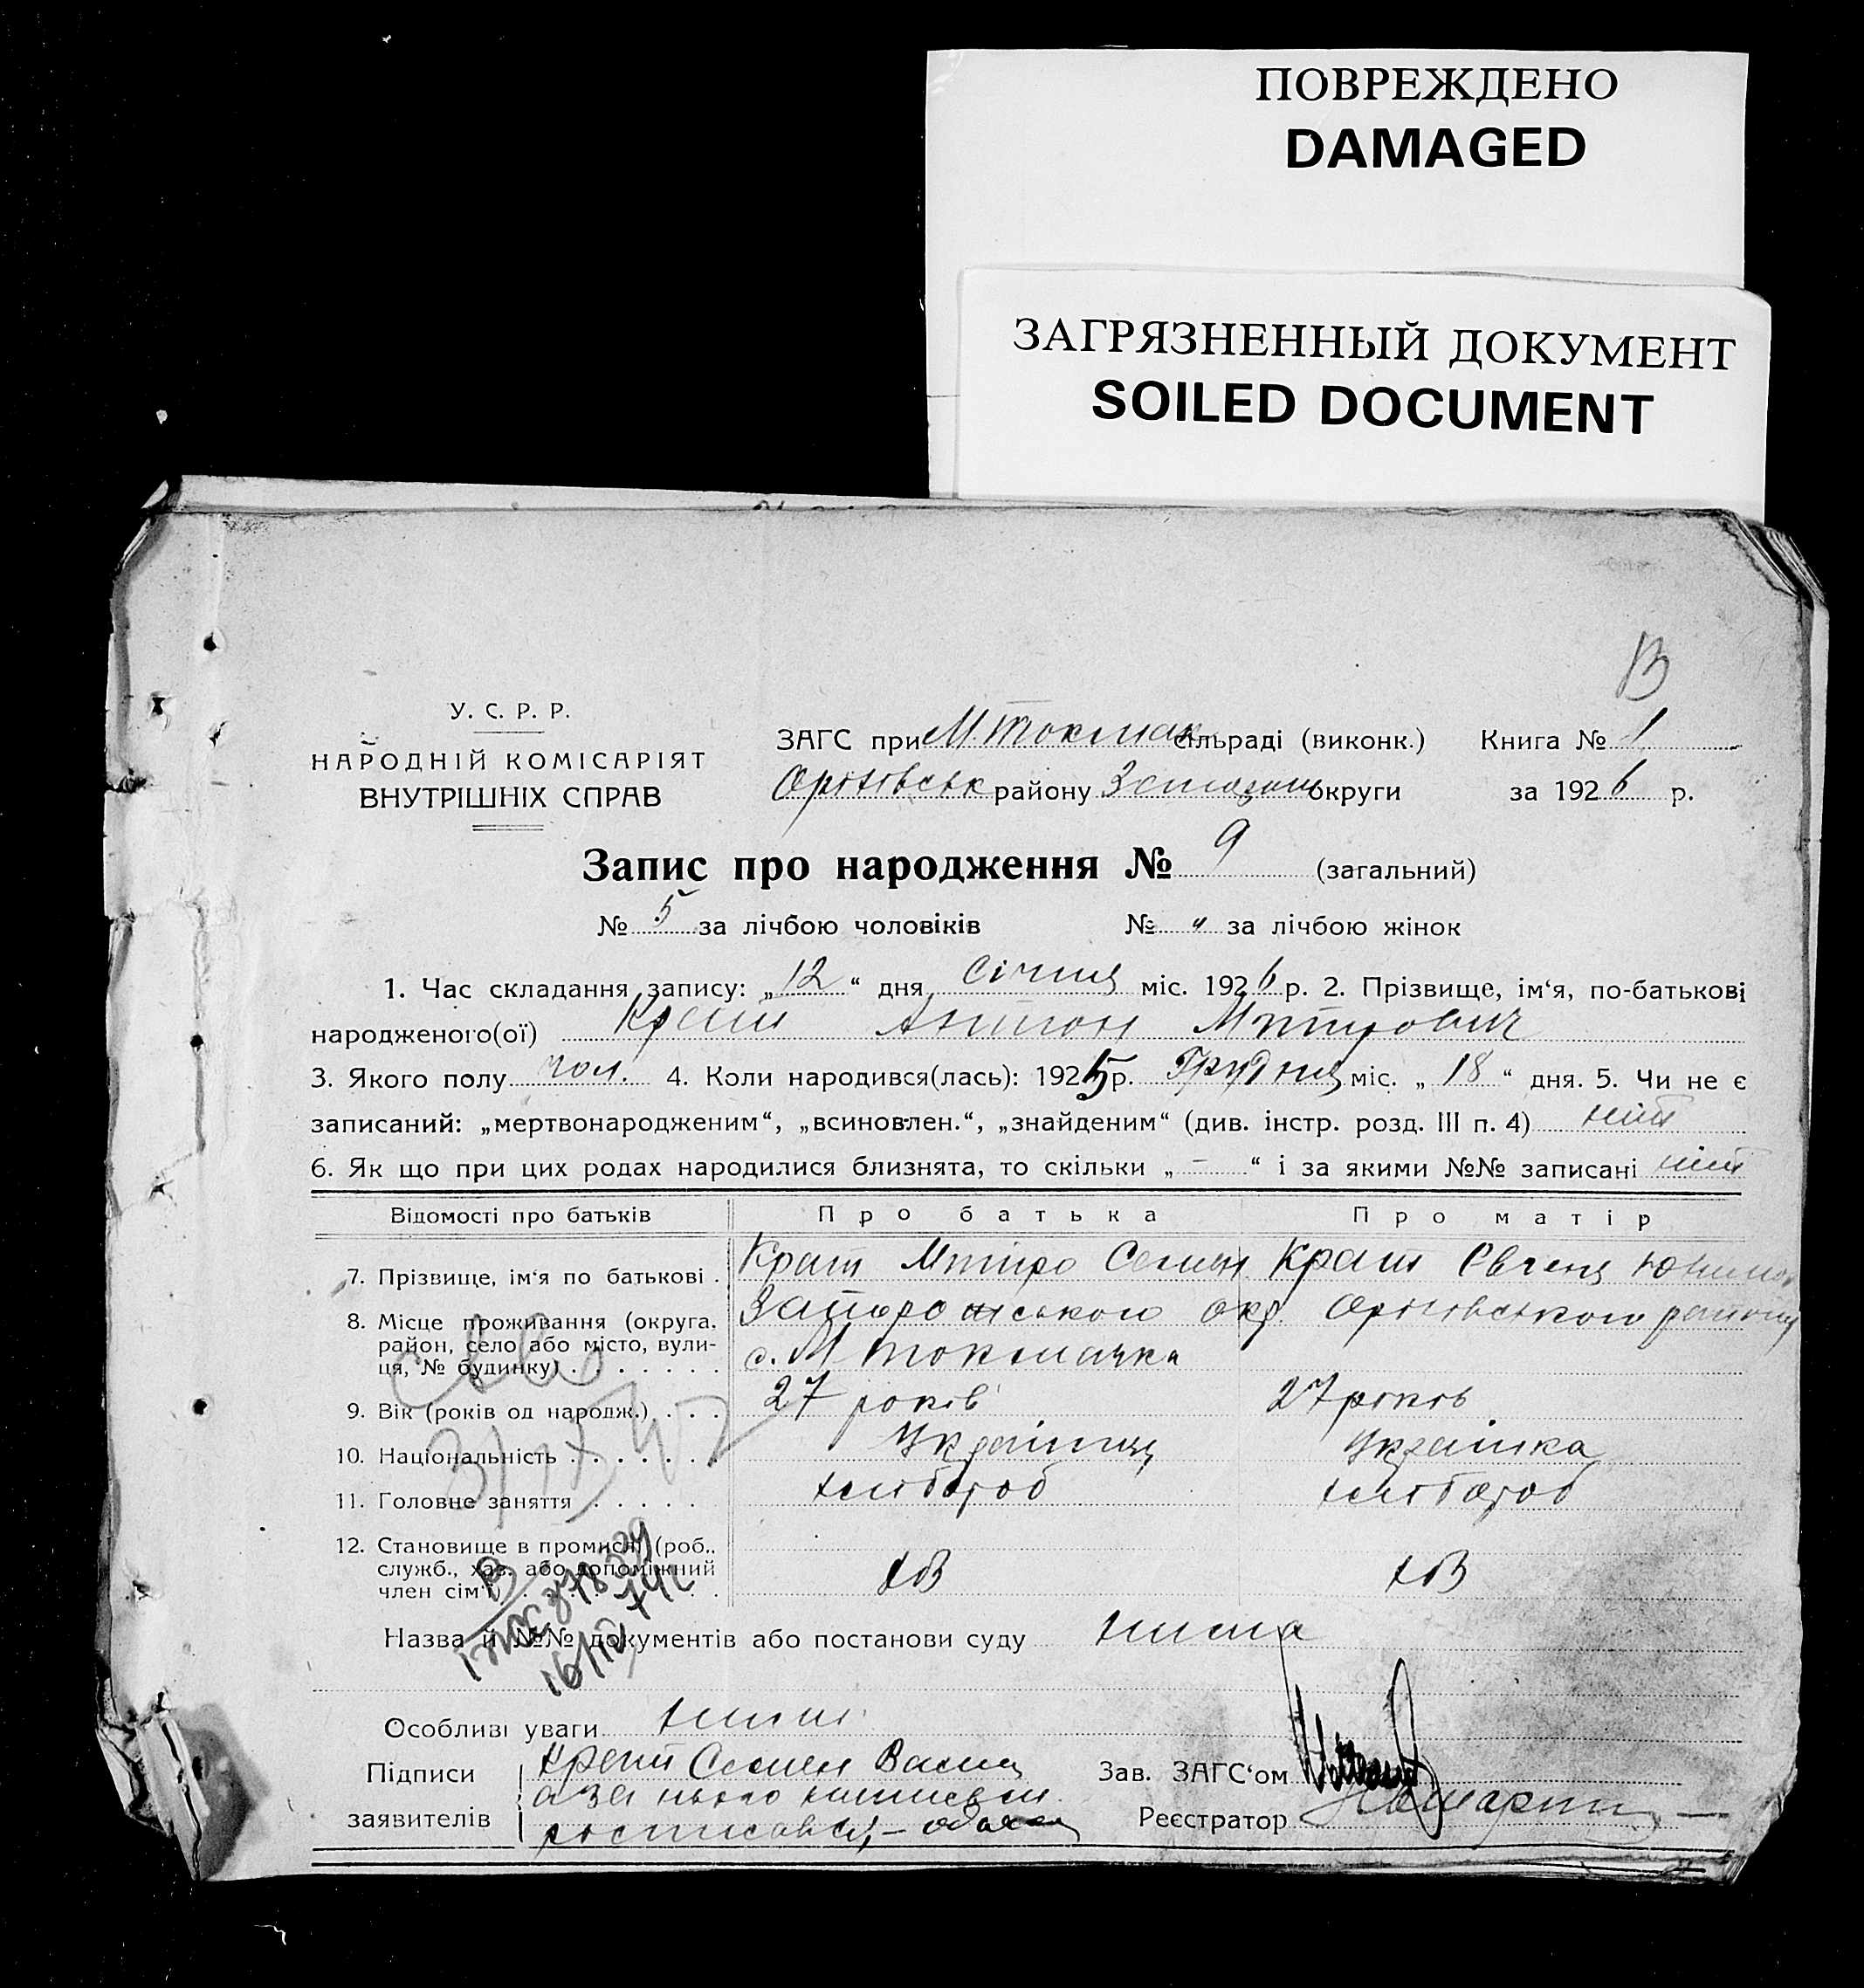 ПОВРЕЖДЕНО
DAMAGED
ЗАГРЯЗНЕННЫЙ ДОКУМЕНТ
SOILED DOCUMENT
В
У. С. Р. Р.
НАРОДНІЙ КОМІСАРІЯТ
ВНУТРІШНІХ СПРАВ
ЗАГС при М Токмак сільраді (виконк.) Книга № 1
Оріхівськ району округи за 1926 р.
Запис про народження № 9 (загальний)
№ 5 за лічбою чоловіків № „ за лічбою жінок
1. Час складання запису: „12“ дня Січня міс. 1926 р. 2. Прізвище, ім‘я, по-батькові
народженого(ої) Крат Антон Митрович
3. Якого полу чол. 4. Коли народився(лась): 1925 р. Грудня міс. „18“ дня. 5. Чи не є
записаний: „мертвонародженим“, „всиновлен.“, „знайденим“ (див. інстр. розд. III п. 4) ніт
6. Як що при цих родах народилися близнята, то скільки „ - “ і за якими №№ записані ніт
Відомості про батьків Про батька Про матір
7. Прізвище, ім‘я по батькові . Крат Митро Семен Крат Євгенія
8. Місце проживання (округа, район, село або місто, вулиця, № будинку) . . . . . . . Запорожського окр. Оріхівського району
с. М Токмачка
9. Вік (років од народж.) . . . 27 років 27 років
10. Національність . . . . . . . Українець Українка
11. Головне заняття . . . . . хлібороб хлібороб
12. Становище в промислі (роб., служб., хаз. або допоміжний член сім‘ї) . . . . . . .
Назва й №№ документів або постанови суду нима
Особливі уваги
Підписи
заявителів
Крат Семен Васил
а за нього
росписався
Зав. ЗАГС‘ом
Реєстратор